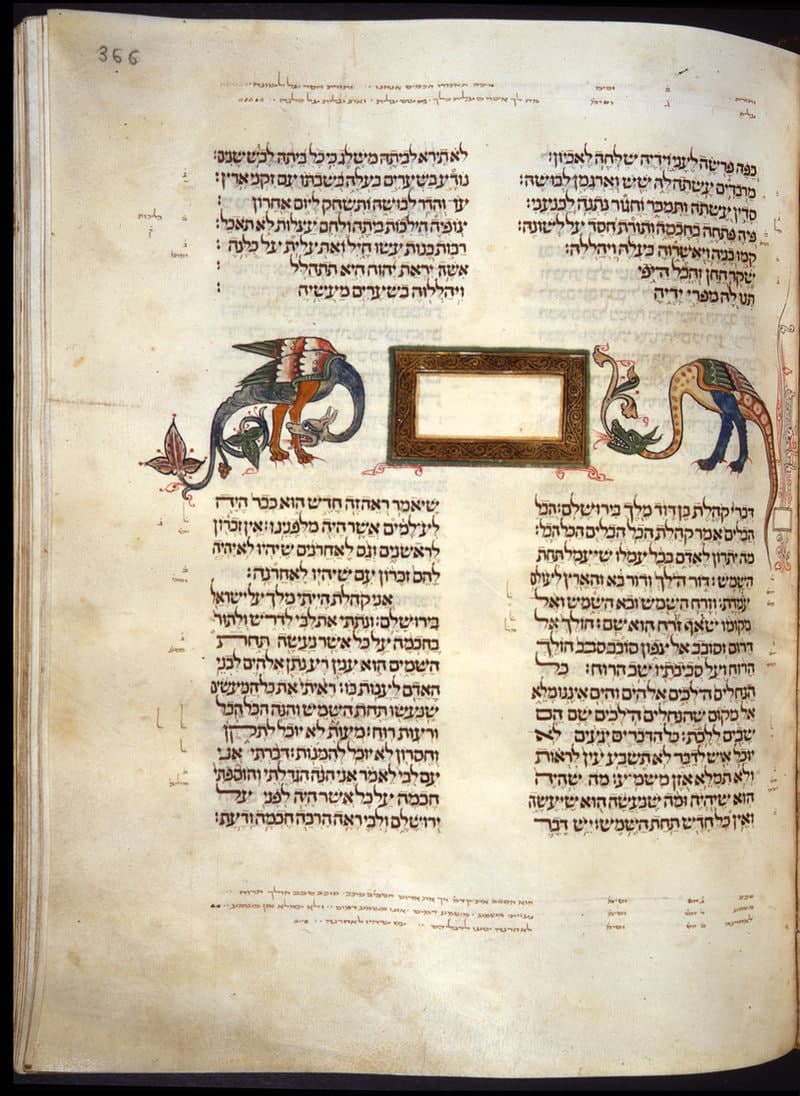 366
איכה תאמרו חכמים אנחנו ותורת חסד על לשונה
כפה פרשה לעני וידיה שלחה לאביון:
לא תירא לביתה משלג כי כל ביתה לבש שנים:
מרבדים עשתה לה שש וארגמן לבושה:
נודע בשערים בעלה בשבתו עם זקני ארץ:
סדין עשתה ותמכר וחגור נתנה לכנעני:
עז והדר לבושה ותשחק ליום אחרון
פיה פתחה בחכמה ותורת חסד על לשונה:
צופיה הילכות ביתה ולחם עצלות לא תאכל:
קמו בניה ויאשרוה בעלה ויהללה:
רבות בנות עשו חיל ואת עלית על כלנה:
שקר החן והבל היפי
אשה יראת יהוה היא תתהלל
תנו לה מפרי ידיה
ויהללוה בשערים מעשיה:
דברי קהלת בן דוד מלך בירושלם: הבל
הבלים אמר קהלת הבל הבלים הכל הבל:
מה יתרון לאדם בכל עמלו שיעמל תחת
השמש: דור הולך ודור בא והארץ לעולם
עמדת: וזרח השמש ובא השמש ואל
מקומו שואף זרח הוא שם: הולך אל
דרום וסובב אל צפון סובב סבב הולך
הרוח ועל סביבתיו שב הרוח: כל
הנחלים הלכים אל הים והים איננו מלא
אל מקום שהנחלים הלכים שם הם
שבים ללכת: כל הדברים יגעים לא
יוכל איש לדבר לא תשבע עין לראות
ולא תמלא אזן משמע: מה שהיה
הוא שיהיה ומה שנעשה הוא שיעשה
ואין כל חדש תחת השמש: יש דבר
שיאמר ראה זה חדש הוא כבר היה
לעלמים אשר היה מלפנינו: אין זכרון
לראשנים וגם לאחרנים שיהיו לא יהיה
להם זכרון עם שיהיו לאחרנה:
אני קהלת הייתי מלך על ישראל
בירושלם: ונתתי את לבי לדרוש ולתור
בחכמה על כל אשר נעשה תחת
השמים הוא ענין רע נתן אלהים לבני
האדם לענות בו: ראיתי את כל המעשים
שנעשו תחת השמש והנה הכל הבל
ורעות רוח: מעות לא יוכל לתקן
וחסרון לא יוכל להמנות: דברתי אני
עם לבי לאמר אני הנה הגדלתי והוספתי
חכמה על כל אשר היה לפני על
ירושלם ולבי ראה הרבה חכמה ודעת: